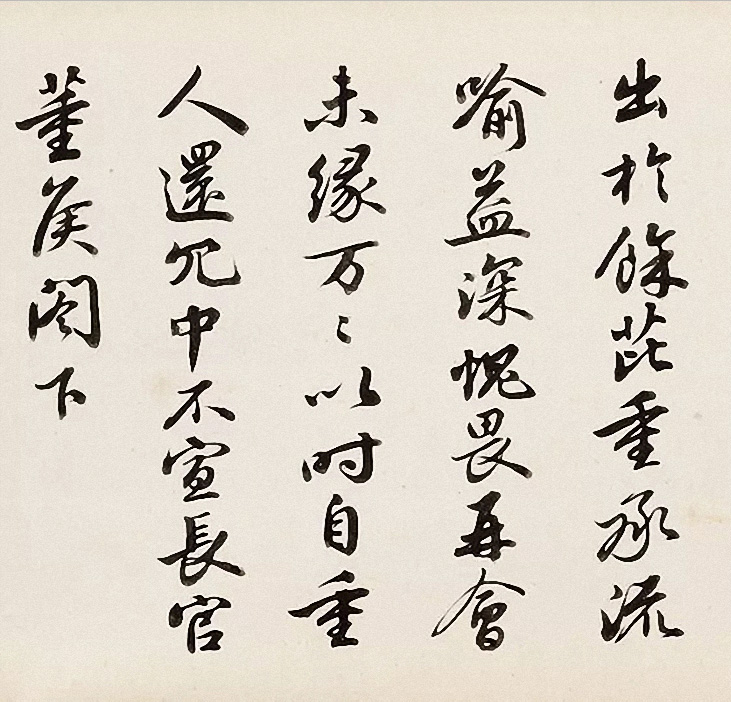 出於餘芘重承流
喻益深愧畏再會
未縁万〻以时自重
人還冗中不宣長官
董侯阁下